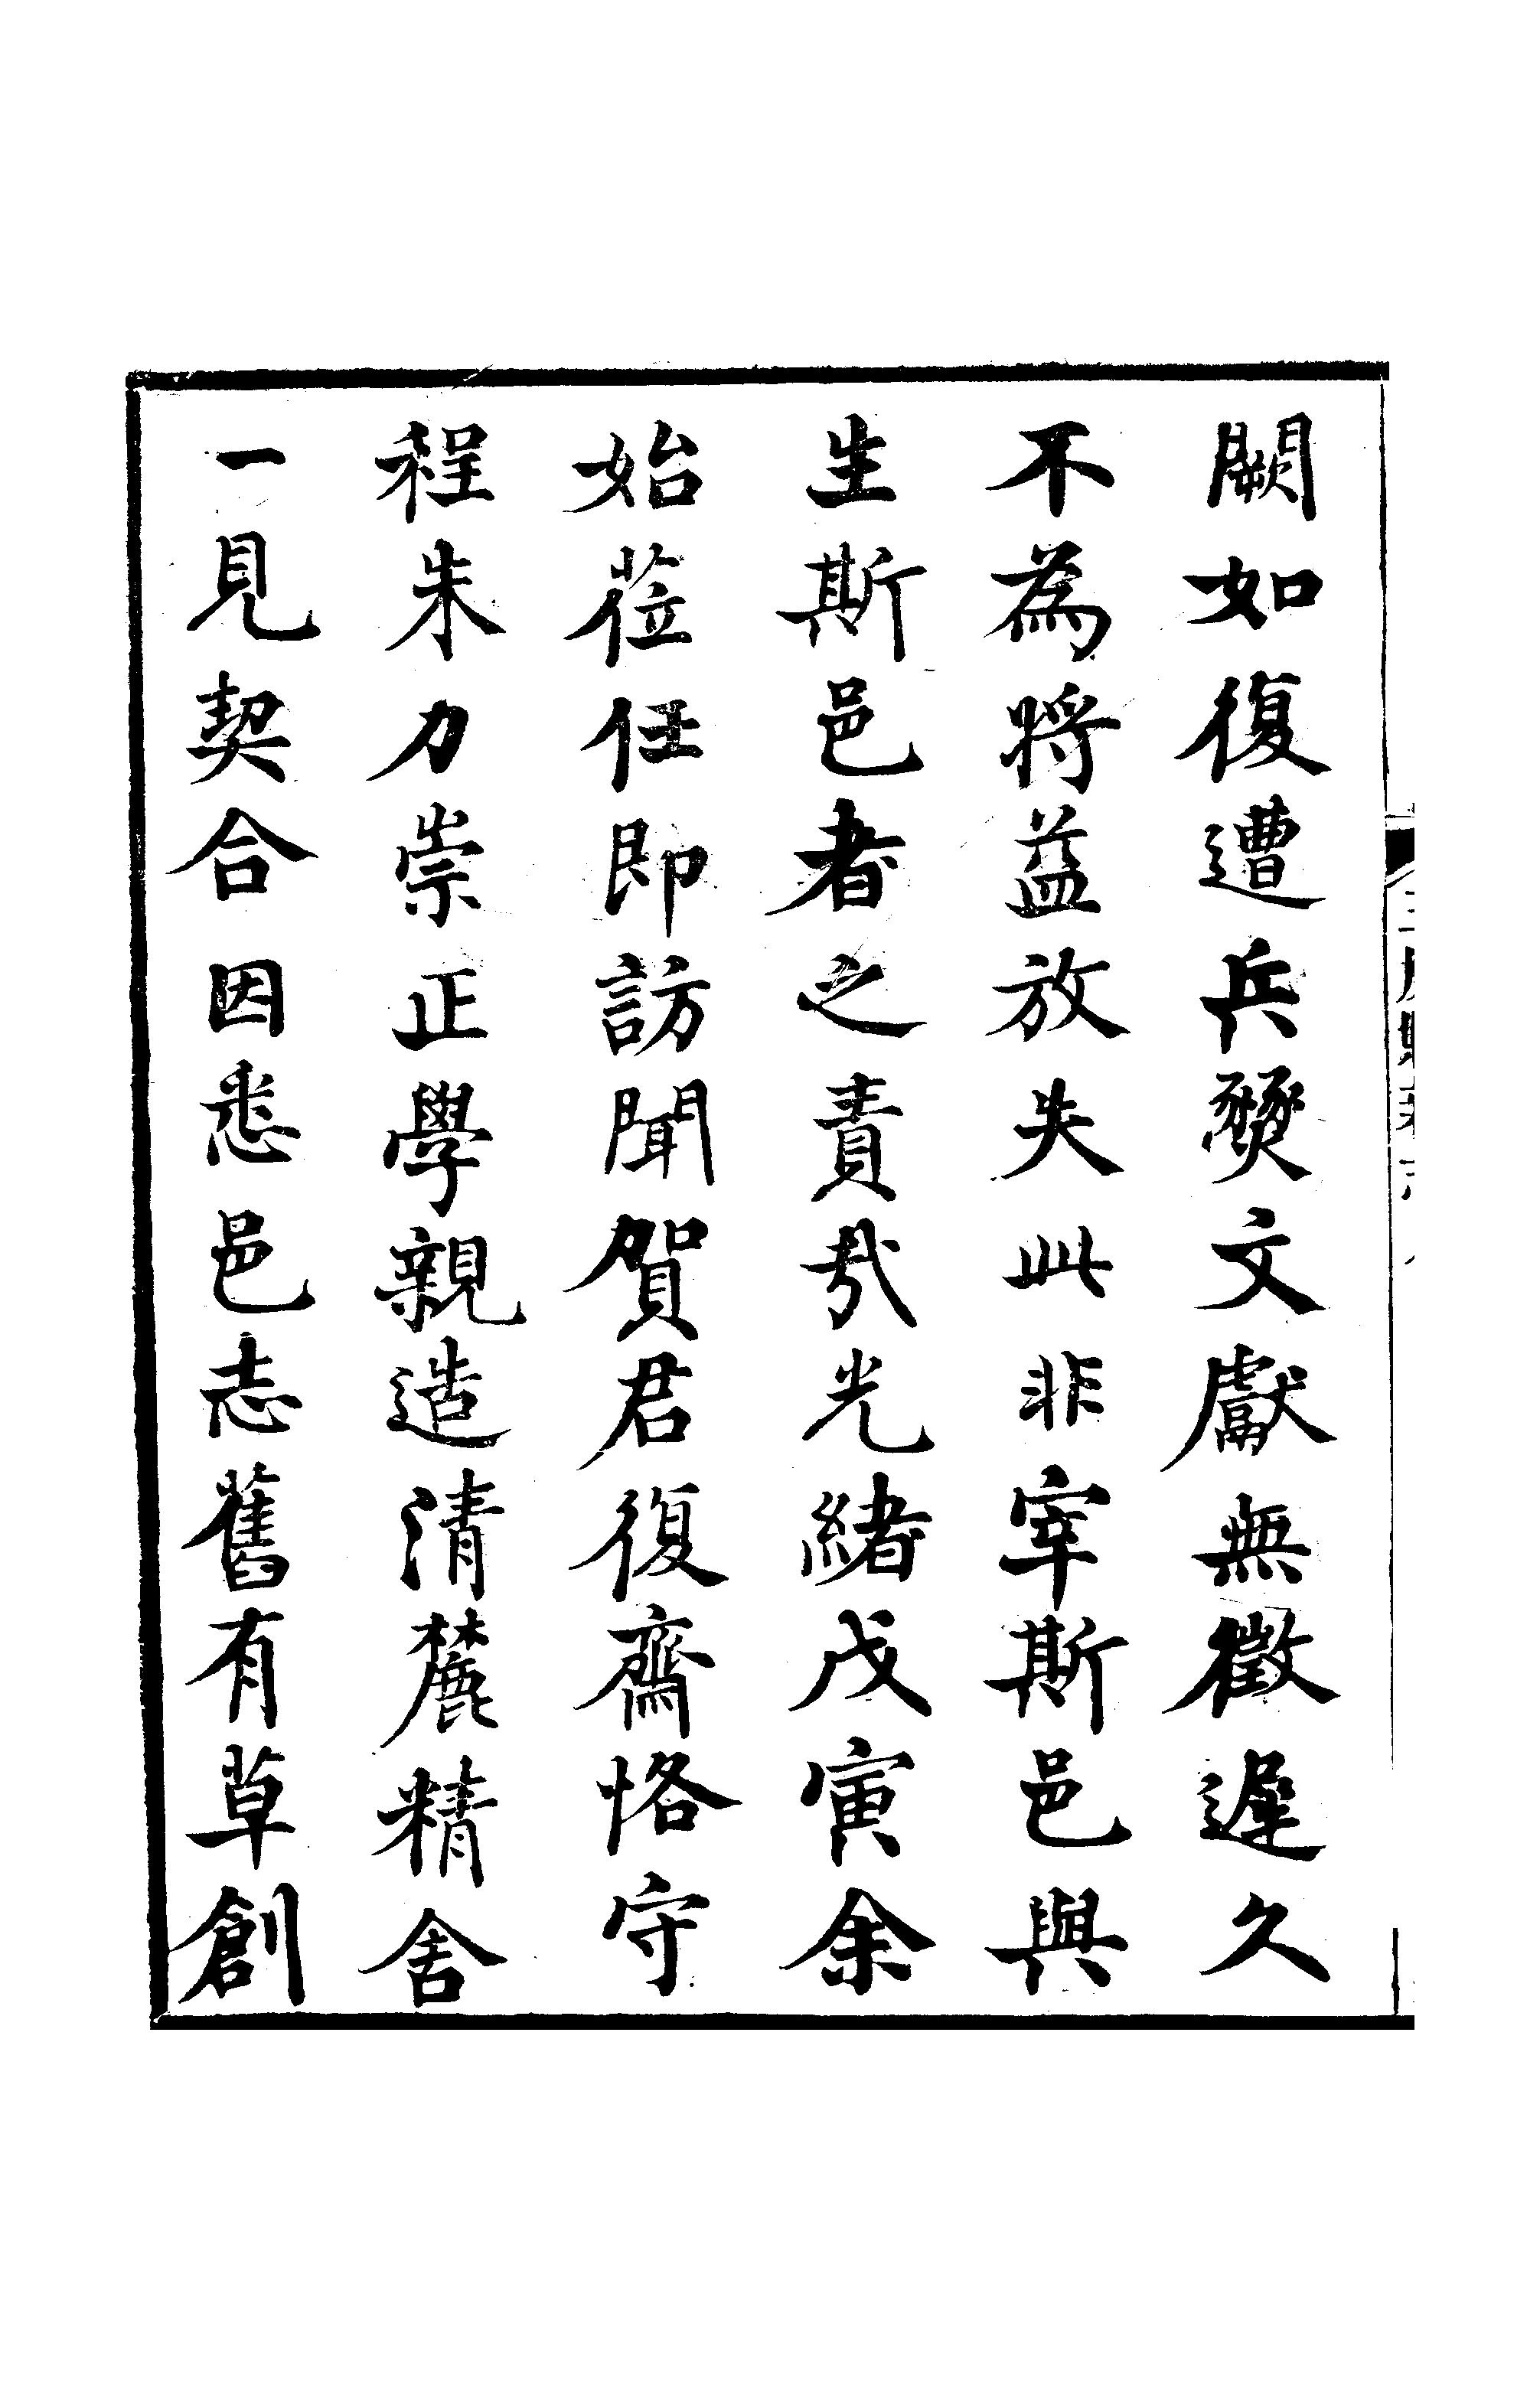 闕如復遭兵燹文獻無徵遲久
不為將益放失此非宰斯邑與
生斯邑者之責哉光緒戊寅余
始莅任即訪聞賀君復齋恪守
程朱力崇正學親造清麓精舍
一見契合因悉邑志舊有草創